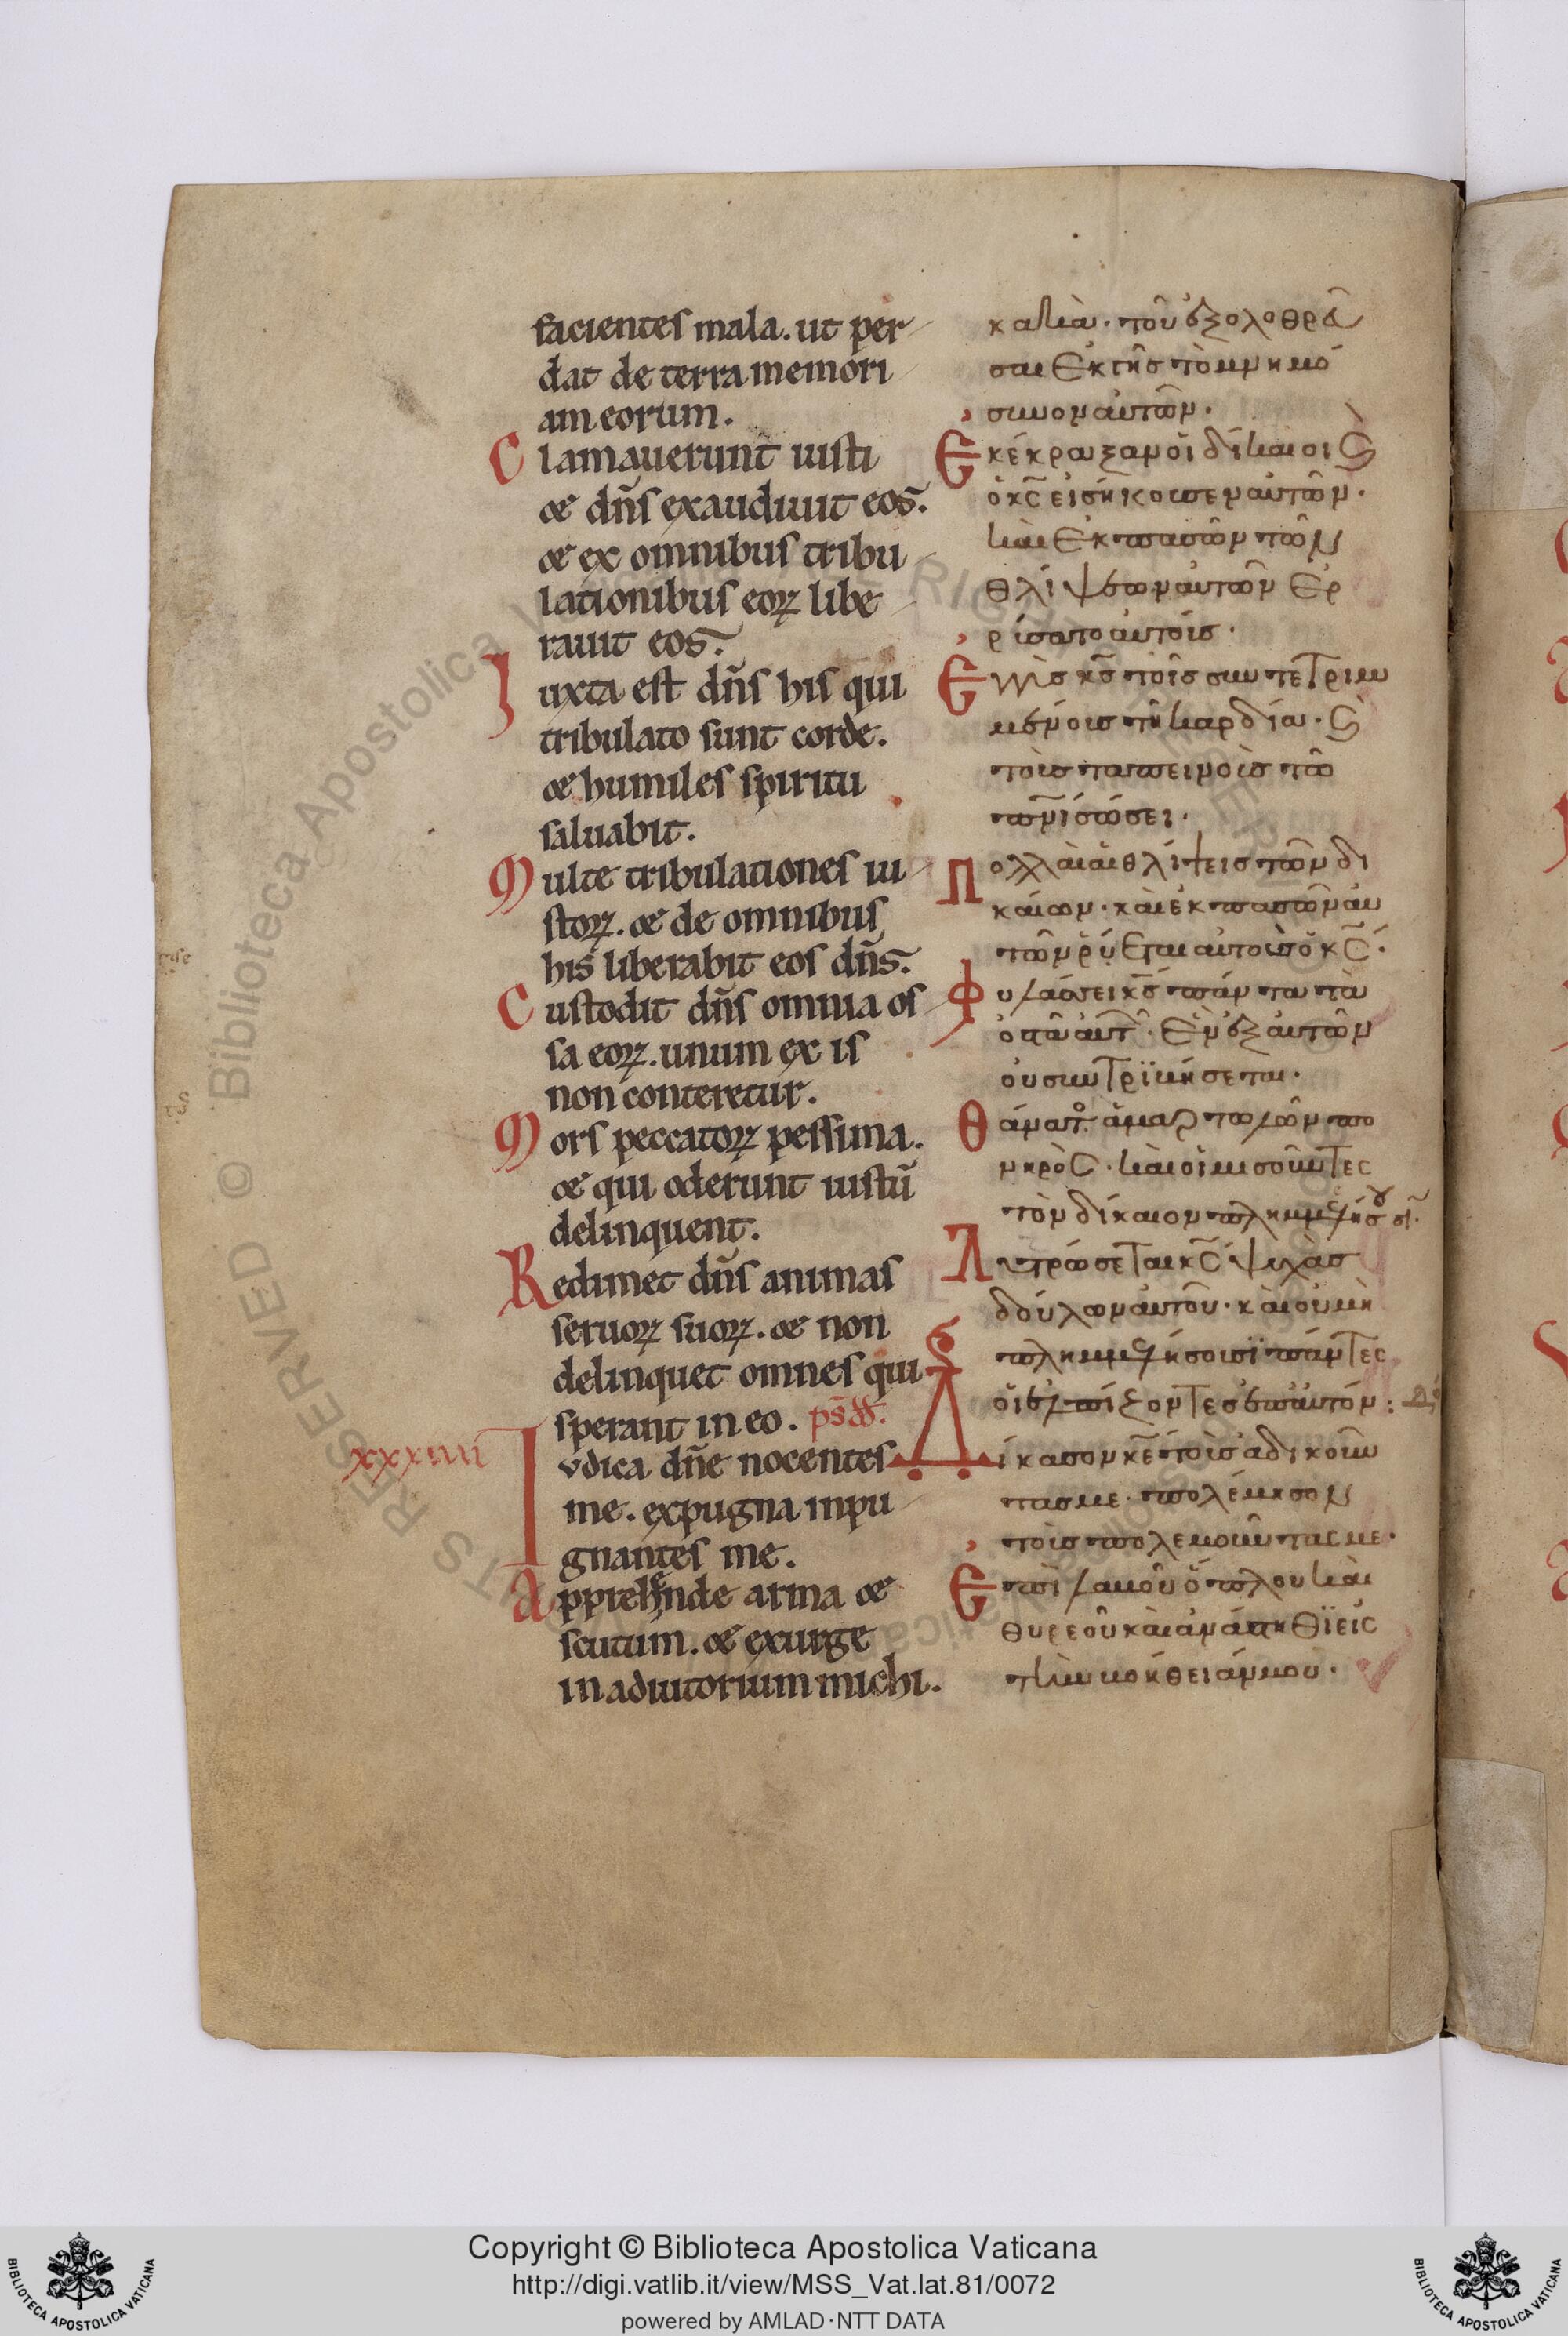 facientes mala. ut per
dat de terra memori
am eorum.
Clamauerunt iusti
& dñs exaudiuit eos.
& ex omnibus tribu
lationibus eoꝝ libe
rauit eos.
Iuxta est dñs his qui
tribulato sunt corde.
& humiles spiritu
saluabit.
Multe tribulationes iu
stoꝝ. & de omnibus
his liberabit eos dñs.
Custodit dñs omnia os
sa eoꝝ. unum ex is
non conteretur.
Mors peccatoꝝ pessima.
& qui oderunt iustū
delinquent.
Redimet dñs animas
seruoꝝ suoꝝ. & non
delinquet omnes qui
sperant in eo.
xxxiiii
Iudica dñe nocentes
me. expugna inpu
gnantes me.
Apprehende arma &
scutum. & exurge
in adiutorium michi.
κακὰ· τοῦ ἐξολοθρεῦ
σαι ἐκ τῆς τὸ μνημό
συνον αὐτῶν.
Ἐκέκραξαν οἱ δίκαιοι ϗ
ὁ κ̅ς̅ εἰσήκουσεν αὐτῶν.
καὶ ἐκ πασῶν τῶν
θλίψεων αὐτῶν ἐρ
ρίσατο αὐτοίς.
Ἐγγὺς κ̅ς̅ τοῖς συντετριμ
μένοις τὴ καρδία· ϗ
τοὶς ταπεινοὶς τῶ
πν̅ι σώσει.
Πολλαὶ αἱ θλίψεις τῶν δι
καίων· καὶ ἐκ πασῶν αὐ
τῶν ῥύεται αὐτοὺς ὁ κ̅ς̅.
Φυλάσσει κ̅ς̅ πάντα τὰ
ὀστᾶ αὐτῶν· ἓν ἐξ αὐτῶν
οὐ συντριβήσεται.
Θάνατος ἁμαρτωλῶν πο
νηρὸς· καὶ οἱ μισοῦντες
τὸν δίκαιον πλημμελήσουσι.
Λυτρώσεται κ̅ς̅ ψυχὰς
δούλων αὐτοῦ· καὶ οὐ μὴ
πλημμελήσουσι πάντες
οἱ ἐλπίζοντες ἐπ' αὐτόν:
Δίκασον κ̅ε̅ τοὶς ἀδικοῦν
τας με· πολέμησον
τοὶς πολεμοῦντας με.
Ἐπιλαβοῦ ὅπλου καὶ
θυρεοῦ καὶ ἀνάστηθι εἰς
τὴν βοήθειάν μου.
Copyright © Biblioteca Apostolica Vaticana
http://digi.vatlib.it/view/MSS_Vat.lat.81/0072
powered by AMLAD·NTT DATA
BIBLIOTECA APOSTOLICA VATICANA
BIBLIOTECA APOSTOLICA VATICANA